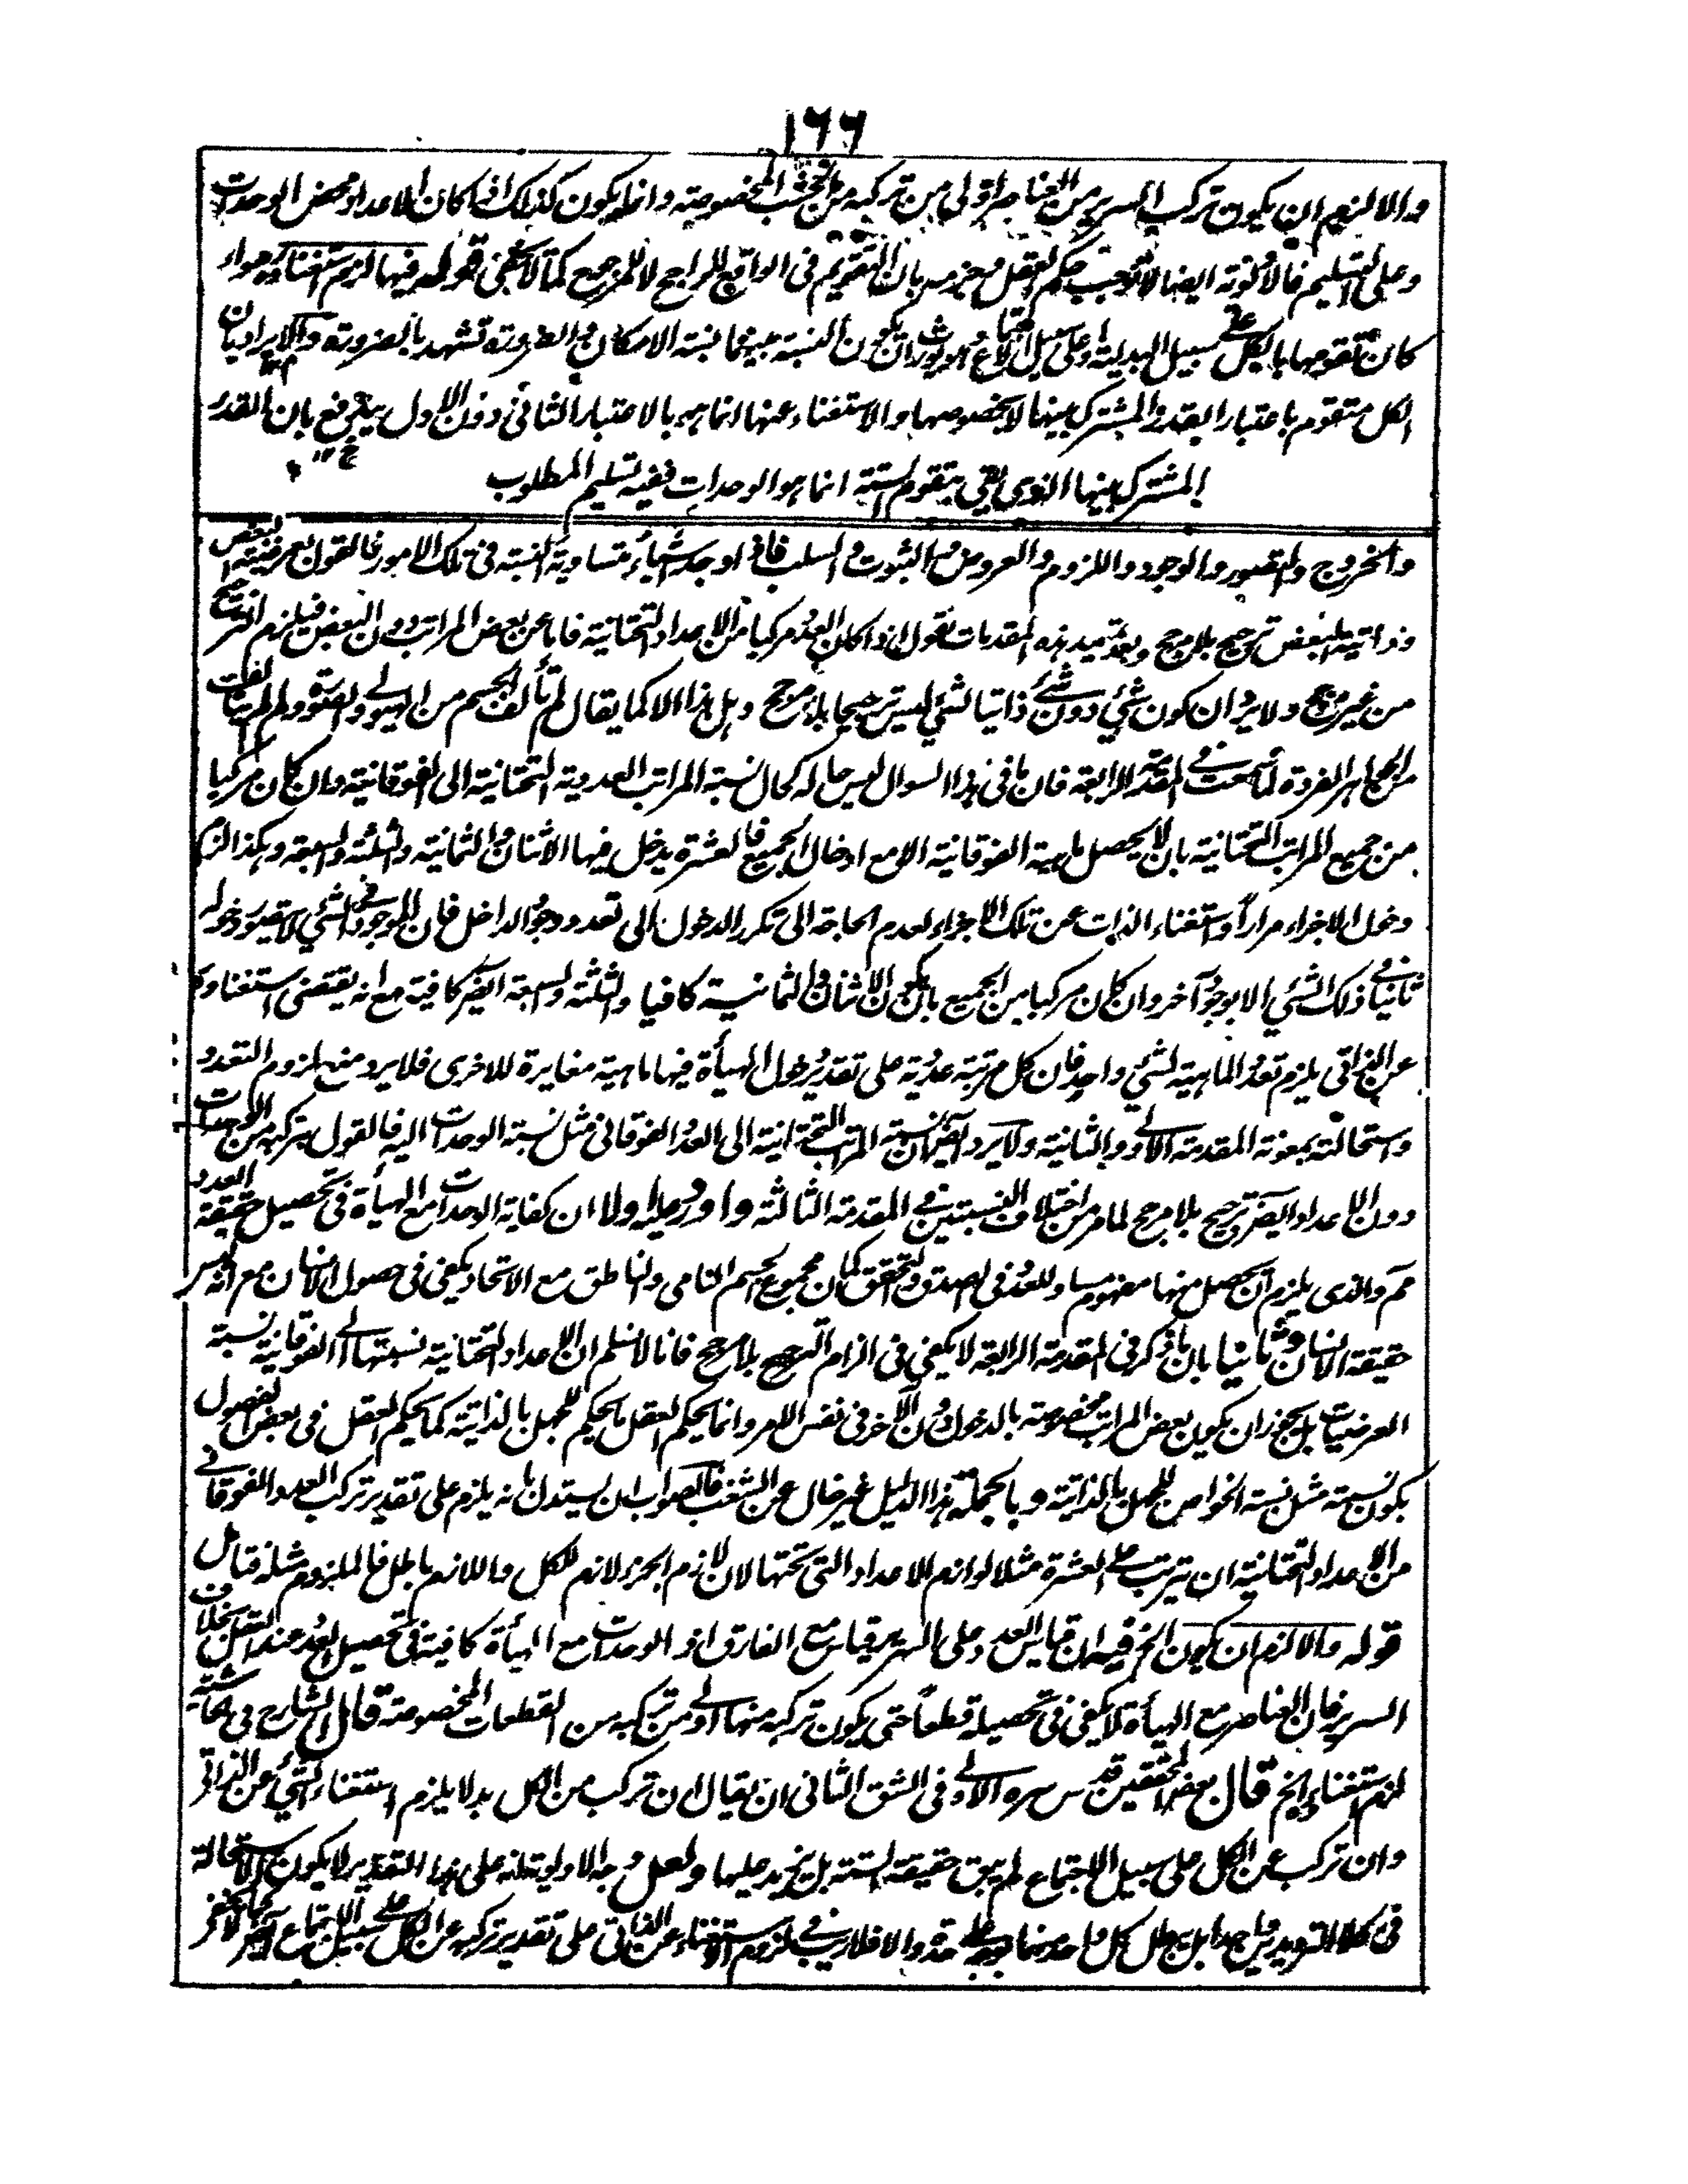 ١٦٦
والا لزم ان يكون تركب السرير من العناصر اولى من تركبه من الخشب المخصوصة وانما يكون كذلك اذا كان الاعداد محض الوحدات
وعلى التسليم فالاولوية ايضا لا توجب حكم العقل وجزمه بان التقويم فى الواقع للراجح لا للمرجوح كما لا يخفى قوله فيها لزم استغناءه سواء
كان تقومها بالكل على سبيل البدلية او على سبيل الاجتماع ان يكون النسبة بينهما نسبة الامكان والضرورة تشهد بالضرورة والايراد بان
الكل متقوم باعتبار القدر المشترك بينها لا بخصوصها والاستغناء عنها انما هو بالاعتبار الثانى دون الاول يندفع بان القدر
المشترك بينها الذى يتقوم الستة انما هو الوحدات ففيه تسليم المطلوب
والخروج والتصور والوجود واللزوم والعروض والثبوت والسلب فاذا وجد اشياء متساوية النسبة فى تلك الامور فالقول بعرضية البعض
وذاتية البعض ترجيح بلا مرجح وبعد تمهيد هذه المقدمات نقول اذا كان العدد مركبا من الاعداد التحتانية فاما عن بعض المراتب دون البعض فيلزم الترجيح
من غير مرجح ولا يرد ان كون شئ دون شئ ذاتيا لشئ ليس ترجيحا بلا مرجح وهل هذا الا كما يقال لم تألف الجسم من الهيولى والصورة ولم لم يتألف
من الجواهر الفردة لما سمعت فى المقدمة الرابعة فان ما فى هذا السوال ليس حاله كحال نسبة المراتب العددية التحتانية الى الفوقانية وان كان مركبا
من جميع المراتب التحتانية بان لا يحصل ماهية الفوقانية الا مع ادخال الجميع فالعشرة يدخل فيها الاثنان والثمانية والثلثة والسبعة وهكذا لزم
دخول الاجزاء مرارا واستغناء الذات عن تلك الاجزاء لعدم الحاجة الى تكرر الدخول الى تعدد وجود الداخل فان الموجود فى الشئ لا يتصور دخوله
ثانيا فى ذلك الشئ الا بوجود آخر وان كان مركبا من الجميع بان يكون الاثنان والثمانية كافيا والثلثة والسبعة ايضا كافية مع انه يقتضى استغناءه
عن الذاتى يلزم تعدد الماهية لشئ واحد فان كل مرتبة عددية على تقدير دخول الهيأة فيها ماهية مغايرة للاخرى فلا يرد منع لزوم التعدد
واستحالته بمعونة المقدمة الاولى والثانية ولا يرد ايضا ان نسبة المراتب التحتانية الى العدد الفوقانى مثل نسبة الوحدات اليه فالقول بتركبه من الوحدات
دون الاعداد ايضا ترجيح بلا مرجح لما مر من اختلاف النسبتين فى المقدمة الثالثة واورد عليه اولا ان كفاية الوحدات مع الهيأة فى تحصيل حقيقة العدد
مم والذى يلزم ان يحصل منها مفهوم مساو للعدد فى الصدق والتحقق كما ان مجموع الجسم النامى والناطق مع الاتحاد يكفى فى حصول الانسان مع انه ليس
حقيقة الانسان وثانيا بان ما ذكر فى المقدمة الرابعة لا يكفى فى الزام الترجيح بلا مرجح فانا لا نسلم ان الاعداد التحتانية نسبتها الى الفوقانية نسبة
العرضيات بل يجوز ان يكون بعض المراتب مخصوصة بالدخول دون الآخر فى نفس الامر وانما يحكم العقل ما يحكم للجهل بالذاتية كما يحكم العقل فى بعض الفصول
بكون نسبته مثل نسبة الخواص للجهل بالذاتية وبالجملة هذا الدليل غير خال عن الشغب فالصواب ان يستدل بانه يلزم على تقدير تركب العدد الفوقانى
من الاعداد التحتانية ان يترتب على العشرة مثلا لوازم الاعداد التى تحتها لان لازم الجزء لازم للكل واللازم باطل فالملزوم مثله فتأمل
قوله والا لزم ان يكون الخ فيه ان قياس العدد على السرير قياس مع الفارق اذ الوحدات مع الهيأة كافية فى تحصيل العدد عند العقل بخلاف
السرير فان العناصر مع الهيأة لا يكفى فى تحصيله قطعا حتى يكون تركبه منها اولى من تركبه من القطعات المخصوصة قال الشارح فى حاشيته
لزم استغناءه الخ قال بعض المحققين قدس سره الاولى فى الشق الثانى ان يقال ان تركب من الكل بدلا يلزم استغناء الشئ عن الذاتى
وان تركب عن الكل على سبيل الاجتماع لم يبق حقيقة الستة بل يزيد عليها ولعل وجه الاولوية انه على هذا التقدير لا يكون الاستحالة
فى كلا الترديدين واحدا بل يبطل كل واحد منهما بوجه على حدة والا فلا ريب فى لزوم الاستغناء عن الذاتى على تقدير تركبه عن الكل على سبيل الاجتماع ايضا كما لا يخفى